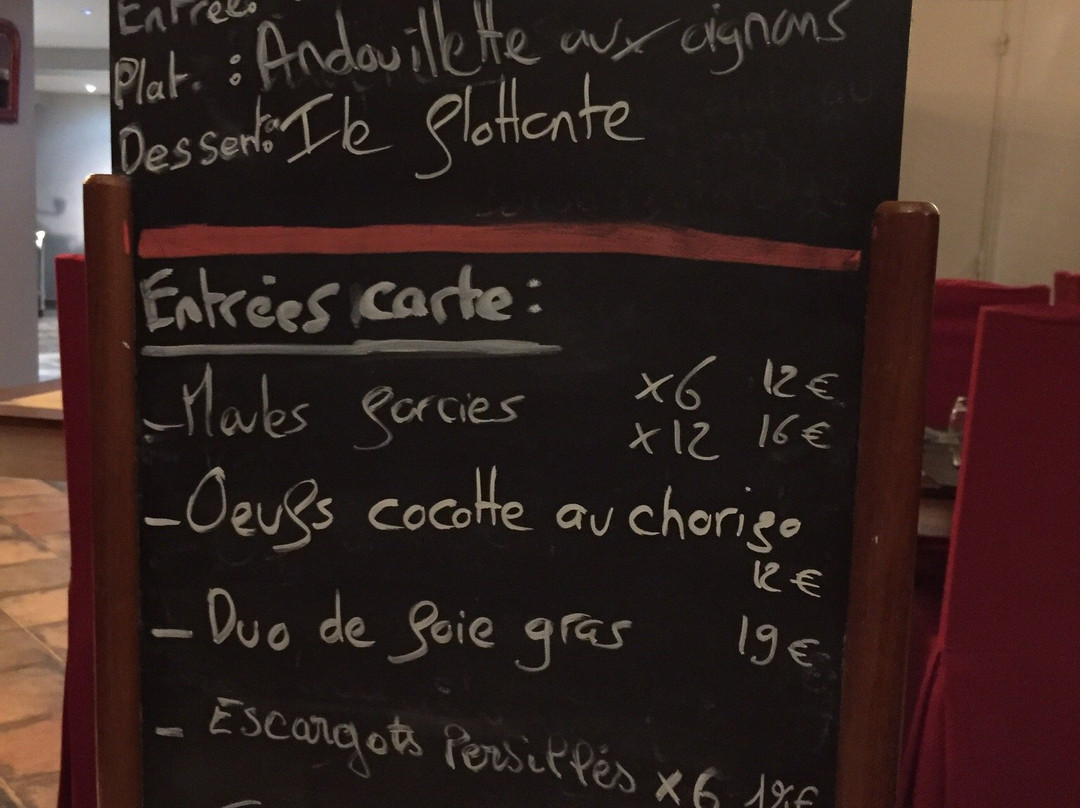 Entrée
Plat : Andouillette aux oignons
Dessert: Ile flottante
Entrées carte :
- Moules farcies x6 12€
x12 16€
- Oeufs cocotte au chorizo
12€
- Duo de foie gras 19€
- Escargots Persillés x6